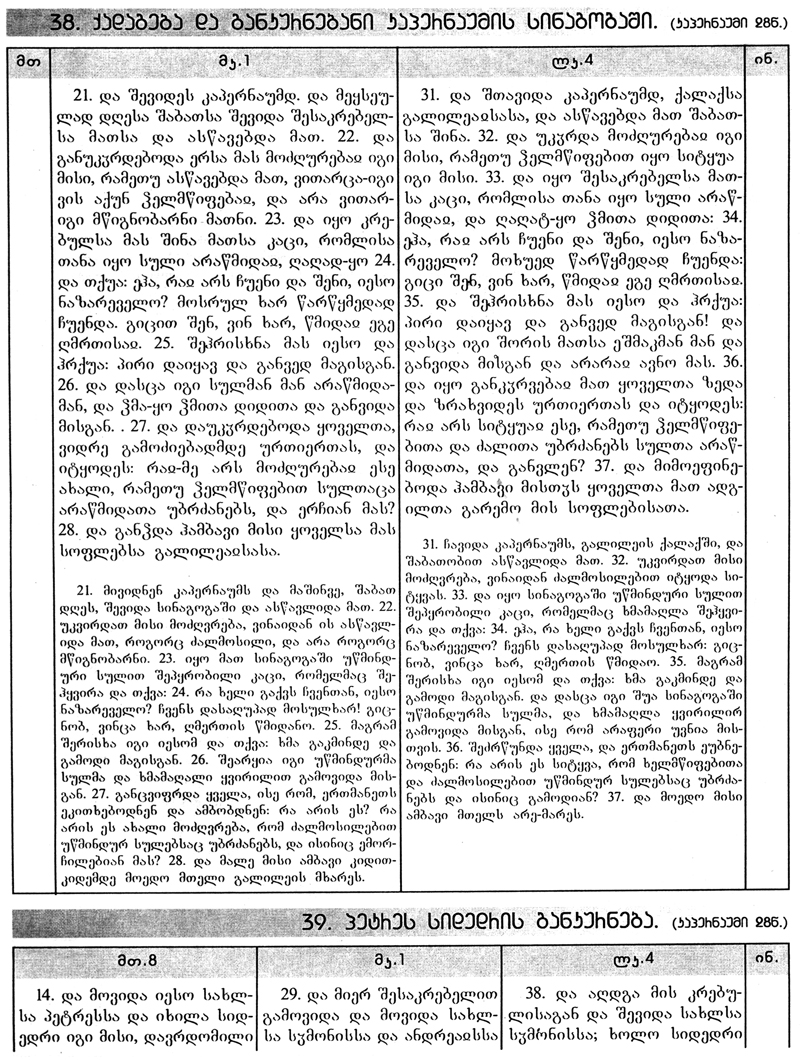 38. ქადაგება და განკურნებანი კაპერნაუმის სინაგოგაში. (კაპერნაუმი 28წ.)
მთ
მკ.1
ლკ.4
ინ.
21. და შევიდეს კაპერნაუმდ. და მეყსეუ-
ლად დღესა შაბათსა შევიდა შესაკრებელ-
სა მათსა და ასწავებდა მათ. 22. და
განუკჳრდებოდა ერსა მას მოძღურებაჲ იგი
მისი, რამეთუ ასწავებდა მათ, ვითარცა-იგი
ვის აქუნ ჴელმწიფებაჲ, და არა ვითარ-
იგი მწიგნობარნი მათნი. 23. და იყო კრე-
ბულსა მას შინა მათსა კაცი, რომლისა
თანა იყო სული არაწმიდაჲ, ღაღად-ყო 24.
და თქუა: ეჰა, რაჲ არს ჩუენი და შენი, იესო
ნაზარეველო? მოსრულ ხარ წარწყმედად
ჩუენდა. გიცით შენ, ვინ ხარ, წმიდაჲ ეგე
ღმრთისაჲ. 25. შეჰრისხნა მას იესო და
ჰრქუა: პირი დაიყავ და განვედ მაგისგან.
26. და დასცა იგი სულმან მან არაწმიდა-
მან, და ჴმა-ყო ჴმითა დიდითა და განვიდა
მისგან. . 27. და დაუკჳრდებოდა ყოველთა,
ვიდრე გამოძიებადმდე ურთიერთას, და
იტყოდეს: რაჲ-მე არს მოძღურებაჲ ესე
ახალი, რამეთუ ჴელმწიფებით სულთაცა
არაწმიდათა უბრძანებს, და ერჩიან მას?
28. და განჴდა ჰამბავი მისი ყოველსა მას
სოფლებსა გალილეაჲსასა.
21. მივიდნენ კაპერნაუმს და მაშინვე, შაბათ
დღეს, შევიდა სინაგოგაში და ასწავლიდა მათ. 22.
უკვირდათ მისი მოძღვრება, ვინაიდან ის ასწავლ-
იდა მათ, როგორც ძალმოსილი, და არა როგორც
მწიგნობარნი. 23. იყო მათ სინაგოგაში უწმინდ-
ური სულით შეპყრობილი კაცი, რომელმაც შე-
ჰყვირა და თქვა: 24. რა ხელი გაქვს ჩვენთან, იესო
ნაზარეველო? ჩვენს დასაღუპად მოსულხარ! გიც-
ნობ, ვინცა ხარ, ღმერთის წმიდანო. 25. მაგრამ
შერისხა იგი იესომ და თქვა: ხმა გაკმინდე და
გამოდი მაგისგან. 26. შეარყია იგი უწმინდურმა
სულმა და ხმამაღალი ყვირილით გამოვიდა მის-
გან. 27. განცვიფრდა ყველა, ისე რომ, ერთმანეთს
ეკითხებოდნენ და ამბობდნენ: რა არის ეს? რა
არის ეს ახალი მოძღვრება, რომ ძალმოსილებით
უწმინდურ სულებსაც უბრძანებს, და ისინიც ემორ-
ჩილებიან მას? 28. და მალე მისი ამბავი კიდით-
კიდემდე მოედო მთელი გალილეის მხარეს.
31. და შთავიდა კაპერნაუმდ, ქალაქსა
გალილეაჲსასა, და ასწავებდა მათ შაბათ-
სა შინა. 32. და უკჳრდა მოძღურებაჲ იგი
მისი, რამეთუ ჴელმწიფებით იყო სიტყუა
იგი მისი. 33. და იყო შესაკრებელსა მათ-
სა კაცი, რომლისა თანა იყო სული არაწ-
მიდაჲ, და ღაღატ-ყო ჴმითა დიდითა: 34.
ეჰა, რაჲ არს ჩუენი და შენი, იესო ნაზა-
რეველო? მოხუედ წარწყმედად ჩუენდა:
გიცი შენ, ვინ ხარ, წმიდაჲ ეგე ღმრთისაჲ.
35. და შეჰრისხნა მას იესო და ჰრქუა:
პირი დაიყავ და განვედ მაგისგან! და
დასცა იგი შორის მათსა ეშმაკმან მან და
განვიდა მისგან და არარაჲ ავნო მას. 36.
და იყო განკჳრვებაჲ მათ ყოველთა ზედა
და ზრახვიდეს ურთიერთას და იტყოდეს:
რაჲ არს სიტყუაჲ ესე, რამეთუ ჴელმწიფე-
ბითა და ძალითა უბრძანებს სულთა არაწ-
მიდათა, და განვლენ? 37. და მიმოეფინე-
ბოდა ჰამბავი მისთჳს ყოველთა მათ ადგ-
ილთა გარემო მის სოფლებისათა.
31. ჩავიდა კაპერნაუმს, გალილეის ქალაქში, და
შაბათობით ასწავლიდა მათ. 32. უკვირდათ მისი
მოძღვრება, ვინაიდან ძალმოსილებით იტყოდა სი-
ტყვას. 33. და იყო სინაგოგაში უწმინდური სულით
შეპყრობილი კაცი, რომელმაც ხმამაღლა შეჰყვი-
რა და თქვა: 34. ეჰა, რა ხელი გაქვს ჩვენთან, იესო
ნაზარეველო? ჩვენს დასაღუპად მოსულხარ: გიც-
ნობ, ვინცა ხარ, ღმერთის წმიდაო. 35. მაგრამ
შერისხა იგი იესომ და თქვა: ხმა გაკმინდე და
გამოდი მაგისგან. და დასცა იგი შუა სინაგოგაში
უწმინდურმა სულმა, და ხმამაღლა ყვირილირ
გამოვიდა მისგან, ისე რომ არაფერი უვნია მის-
თვის. 36. შეძრწუნდა ყველა, და ერთმანეთს ეუბნე-
ბოდნენ: რა არის ეს სიტყვა, რომ ხელმწიფებითა
და ძალმოსილებით უწმინდურ სულებსაც უბრძა-
ნებს და ისინიც გამოდიან? 37. და მოედო მისი
ამბავი მთელს არე-მარეს.
39. პეტრეს სიდედრის განკურნება. (კაპერნაუმი 28წ.)
მთ.8
მკ.1
ლკ.4
ინ.
14. და მოვიდა იესო სახლ-
სა პეტრესსა და იხილა სიდ-
ედრი იგი მისი, დავრდომილი
29. და მიერ შესაკრებელით
გამოვიდა და მოვიდა სახლ-
სა სჳმონისსა და ანდრეაჲსსა
38. და აღდგა მის კრებუ-
ლისაგან და შევიდა სახლსა
სჳმონისსა; ხოლო სიდედრი